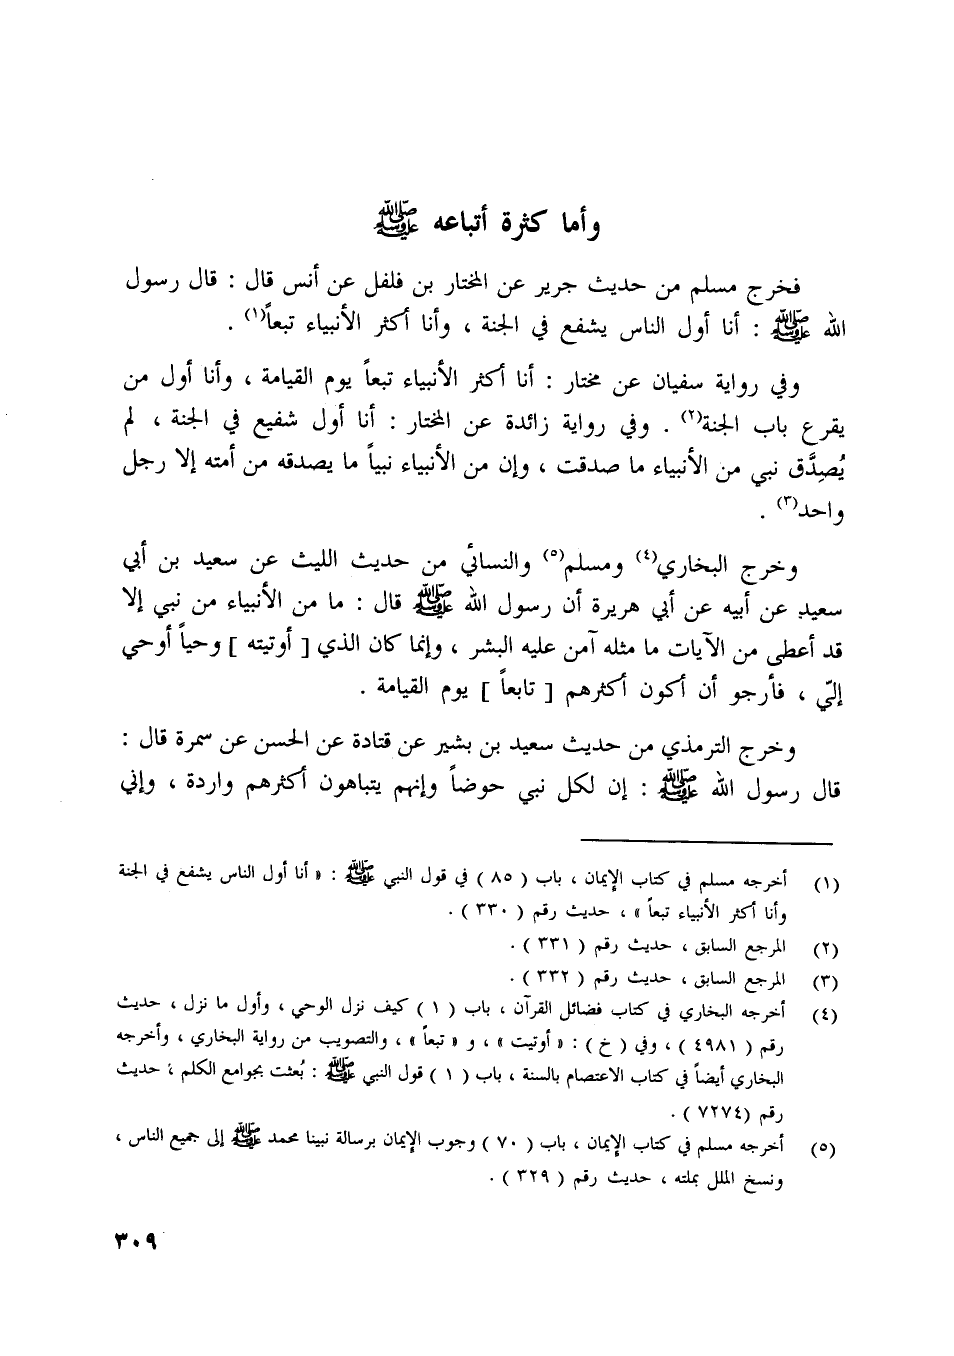 وأما كثرة أتباعه ﷺ
فخرج مسلم من حديث جرير عن المختار بن فلفل عن أنس قال : قال رسول
الله ﷺ : أنا أول الناس يشفع في الجنة ، وأنا أكثر الأنبياء تبعاً(١) .
وفي رواية سفيان عن مختار : أنا أكثر الأنبياء تبعاً يوم القيامة ، وأنا أول من
يقرع باب الجنة(٢) . وفي رواية زائدة عن المختار : أنا أول شفيع في الجنة ، لم
يُصِدَّق نبي من الأنبياء ما صدقت ، وإن من الأنبياء نبياً ما يصدقه من أمته إلا رجل
واحد(٣) .
وخرج البخاري(٤) ومسلم(٥) والنسائي من حديث الليث عن سعيد بن أبي
سعيد عن أبيه عن أبي هريرة أن رسول الله ﷺ قال : ما من الأنبياء من نبي إلا
قد أعطى من الآيات ما مثله آمن عليه البشر ، وإنما كان الذي [ أوتيته ] وحياً أوحي
إليّ ، فأرجو أن أكون أكثرهم [ تابعاً ] يوم القيامة .
وخرج الترمذي من حديث سعيد بن بشير عن قتادة عن الحسن عن سمرة قال :
قال رسول الله ﷺ : إن لكل نبي حوضاً وإنهم يتباهون أكثرهم واردة ، وإني
(١) أخرجه مسلم في كتاب الإيمان ، باب ( ٨٥ ) في قول النبي ﷺ : « أنا أول الناس يشفع في الجنة
وأنا أكثر الأنبياء تبعاً » ، حديث رقم ( ٣٣٠ ) .
(٢) المرجع السابق ، حديث رقم ( ٣٣١ ) .
(٣) المرجع السابق ، حديث رقم ( ٣٣٢ ) .
(٤) أخرجه البخاري في كتاب فضائل القرآن ، باب ( ١ ) كيف نزل الوحي ، وأول ما نزل ، حديث
رقم ( ٤٩٨١ ) ، وفي ( خ ) : « أوتيت » ، و « تبعاً » ، والتصويب من رواية البخاري ، وأخرجه
البخاري أيضاً في كتاب الاعتصام بالسنة ، باب ( ١ ) قول النبي ﷺ : بُعثت بجوامع الكلم ، حديث
رقم (٧٢٧٤ ) .
(٥) أخرجه مسلم في كتاب الإيمان ، باب ( ٧٠ ) وجوب الإيمان برسالة نبينا محمد ﷺ إلى جميع الناس ،
ونسخ الملل بملته ، حديث رقم ( ٣٢٩ ) .
٣٠٩